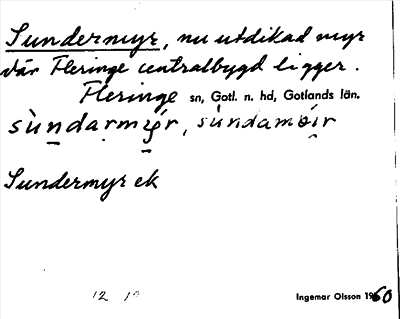 Sundermyr, nu utdikad myr
där Fleringe centralbygd ligger.
Fleringe sn, Gotl. n. hd, Gotlands län.
sùndarmýr, sùndamöir
Sundermyr ek
12 12
Ingemar Olsson 1960